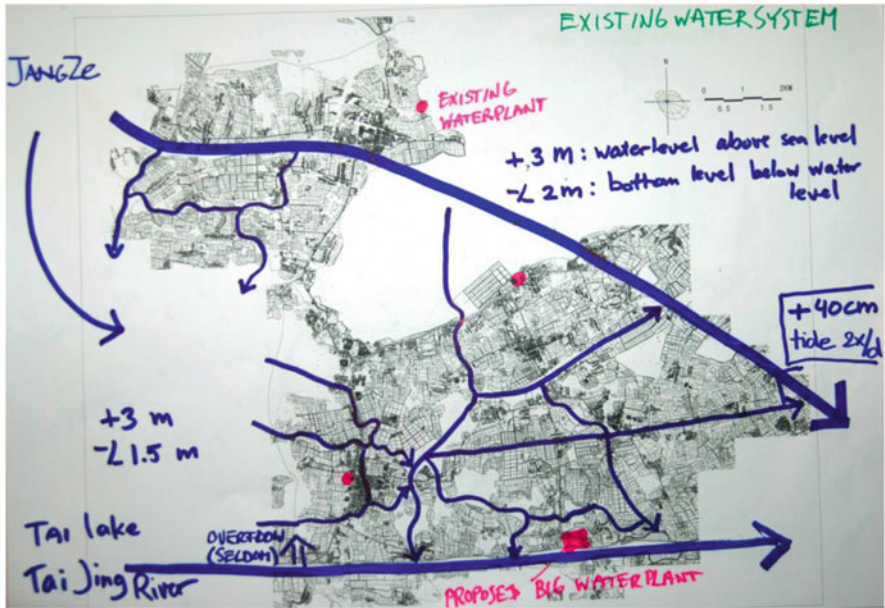 EXISTING WATERSYSTEM
JANGZE
EXISTING
WATERPLANT
N
0 1 2KM
0.5 1.5
+3 M: waterlevel above sea level
-∠ 2m: bottom level below water
level
+40cm
tide 2x/d
+3 m
-∠1.5 m
TAI lake
OVERFLOW
(SELDOM)
Tai Jing River
PROPOSED BIG WATERPLANT